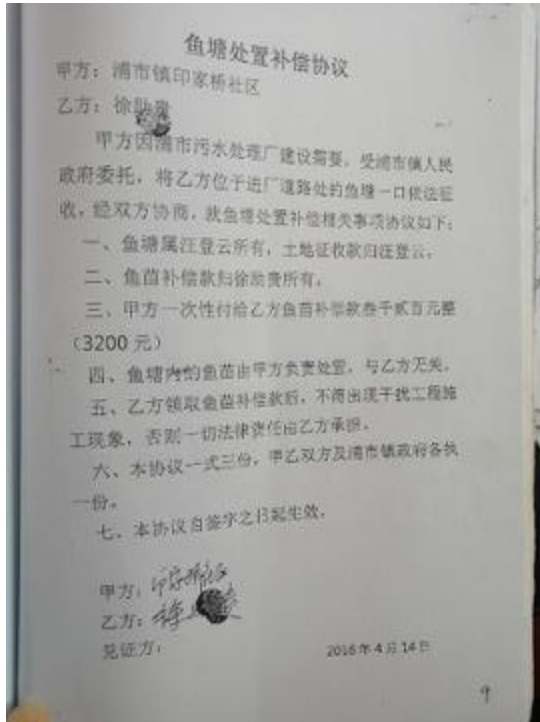 鱼塘处置补偿协议
甲方：浦市镇印家桥社区
乙方：徐助贵
甲方因浦市污水处理厂建设需要，受浦市镇人民
政府委托，将乙方位于进厂道路处的鱼塘一口依法征
收，经双方协商，就鱼塘处置补偿相关事项协议如下：
一、鱼塘属汪登云所有，土地征收款归汪登云。
二、鱼苗补偿款归徐助贵所有。
三、甲方一次性付给乙方鱼苗补偿款叁千贰百元整
（3200 元）
四、鱼塘内的鱼苗由甲方负责处置，与乙方无关。
五、乙方领取鱼苗补偿款后，不得出现干扰工程施
工现象，否则一切法律责任由乙方承担。
六、本协议一式三份，甲乙双方及浦市镇政府各执
一份。
七、本协议自签字之日起生效。
甲方：印家桥社区
乙方：徐
见证方：
2016 年 4 月 14 日
9